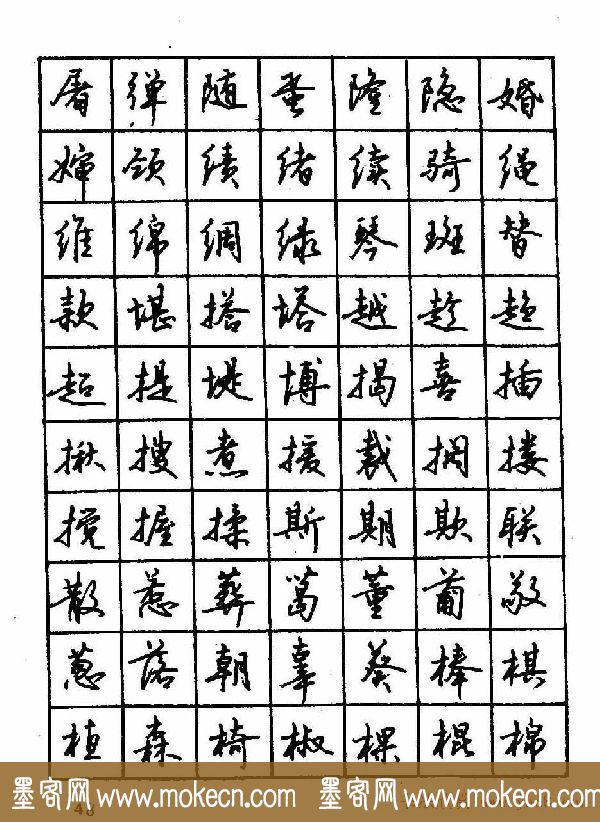 屠 弹 随 蛋 隆 隐 婚
婶 颌 绩 绪 续 骑 绳
维 绵 绸 绿 琴 斑 替
款 堪 搭 塔 越 趁 趋
超 提 堤 博 揭 喜 插
揪 搜 煮 援 裁 搁 搂
搅 握 揉 斯 期 欺 联
散 惹 葬 葛 董 葡 敬
葱 落 朝 辜 葵 棒 棋
植 森 椅 椒 棵 棍 棉
48
墨客网 www.mokecn.com 墨客网 www.mokecn.com